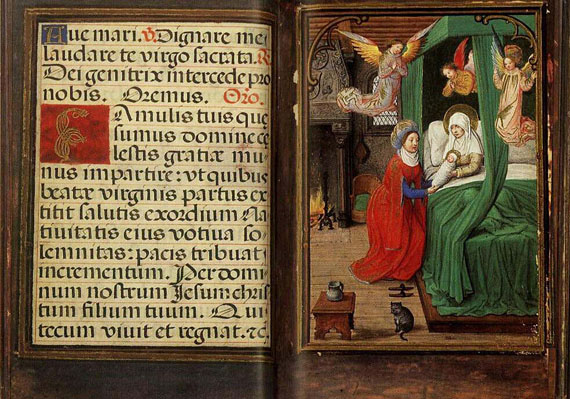 Aue mari. V. Dignare me
laudare te virgo sacrata. R
Dei genitrix intercede pro
nobis. Oremus. Oro.
FAmulis tuis que
sumus domine ce
lestis gratiæ mu
nus impartire: vt quibus
beatæ virginis partus ex
titit salutis exordium Na
tiuitatis eius votiua so
lemnitas: pacis tribuat
incrementum. Per domi
num nostrum Jesum chris
tum filium tuum. Qui
tecum viuit et regnat. &c